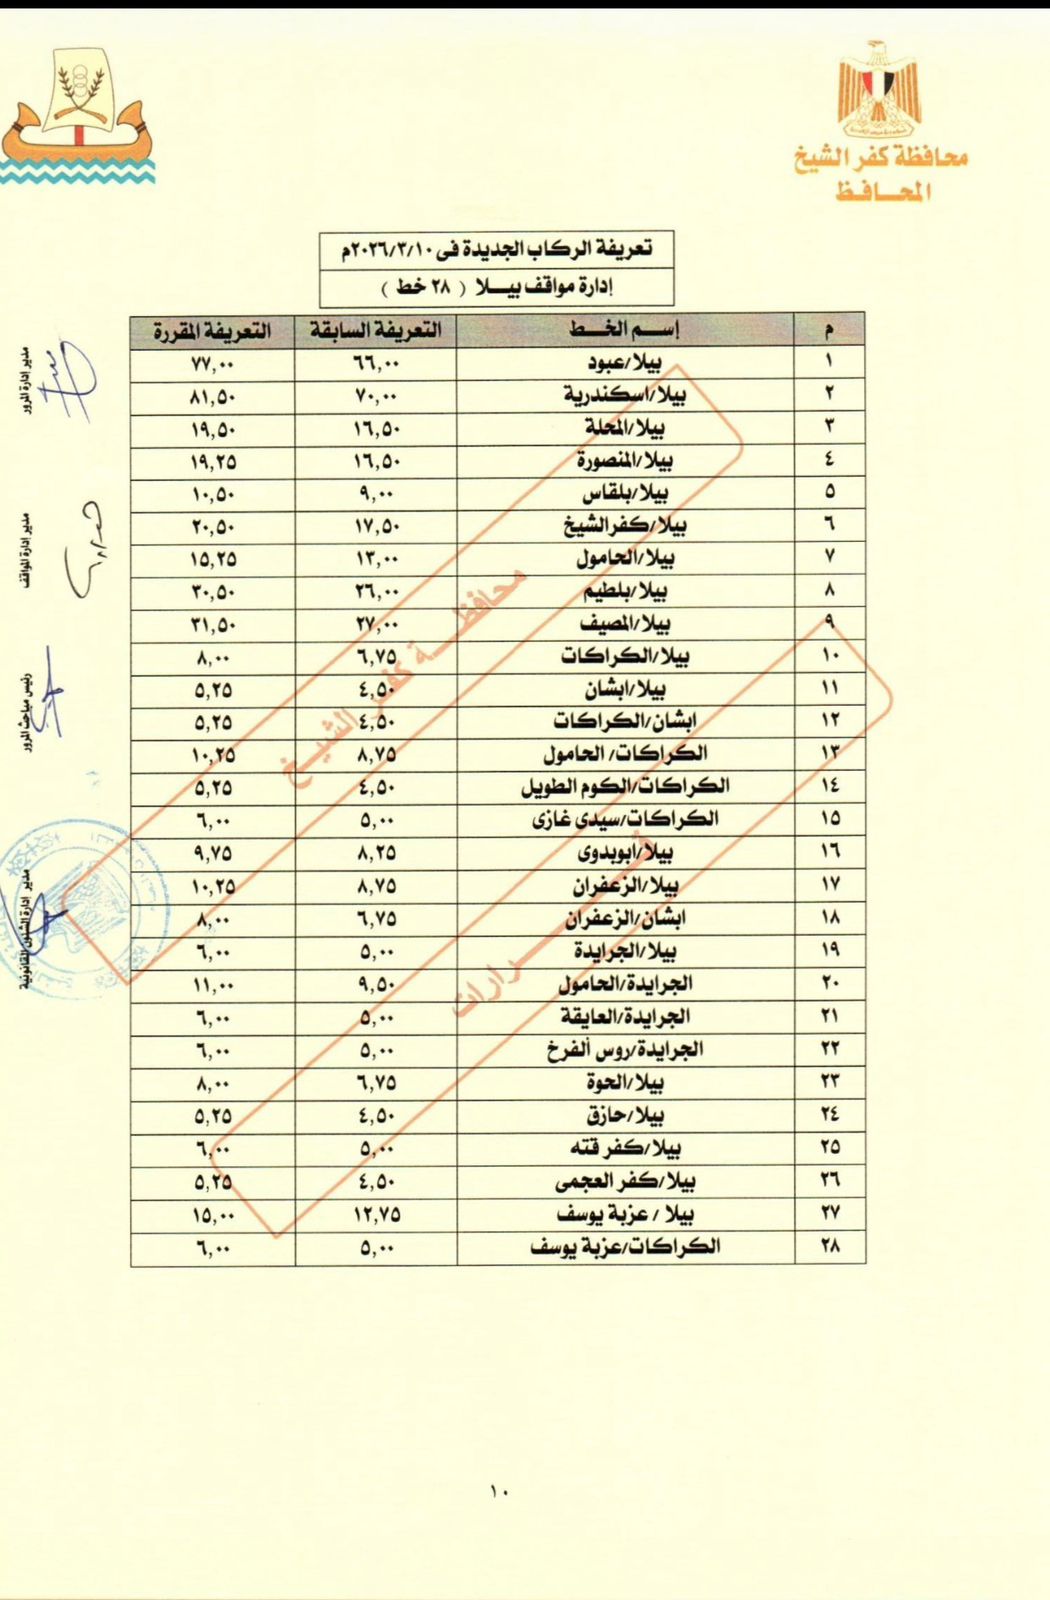 محافظة كفر الشيخ
المحافظ
تعريفة الركاب الجديدة فى ٢٠٢٦/٣/١٠م
إدارة مواقف بيلا ( ٢٨ خط )
م إسم الخط التعريفة السابقة التعريفة المقررة
١ بيلا/عبود ٦٦,٠٠ ٧٧,٠٠
٢ بيلا/اسكندرية ٧٠,٠٠ ٨١,٥٠
٣ بيلا/المحلة ١٦,٥٠ ١٩,٥٠
٤ بيلا/المنصورة ١٦,٥٠ ١٩,٢٥
٥ بيلا/بلقاس ٩,٠٠ ١٠,٥٠
٦ بيلا/كفرالشيخ ١٧,٥٠ ٢٠,٥٠
٧ بيلا/الحامول ١٣,٠٠ ١٥,٢٥
٨ بيلا/بلطيم ٢٦,٠٠ ٣٠,٥٠
٩ بيلا/المصيف ٢٧,٠٠ ٣١,٥٠
١٠ بيلا/الكراكات ٦,٧٥ ٨,٠٠
١١ بيلا/ابشان ٤,٥٠ ٥,٢٥
١٢ ابشان/الكراكات ٤,٥٠ ٥,٢٥
١٣ الكراكات/ الحامول ٨,٧٥ ١٠,٢٥
١٤ الكراكات/الكوم الطويل ٤,٥٠ ٥,٢٥
١٥ الكراكات/سيدى غازى ٥,٠٠ ٦,٠٠
١٦ بيلا/ابوبدوى ٨,٢٥ ٩,٧٥
١٧ بيلا/الزعفران ٨,٧٥ ١٠,٢٥
١٨ ابشان/الزعفران ٦,٧٥ ٨,٠٠
١٩ بيلا/الجرايدة ٥,٠٠ ٦,٠٠
٢٠ الجرايدة/الحامول ٩,٥٠ ١١,٠٠
٢١ الجرايدة/العايقة ٥,٠٠ ٦,٠٠
٢٢ الجرايدة/روس الفرخ ٥,٠٠ ٦,٠٠
٢٣ بيلا/الحوة ٦,٧٥ ٨,٠٠
٢٤ بيلا/حازق ٤,٥٠ ٥,٢٥
٢٥ بيلا/كفر قته ٥,٠٠ ٦,٠٠
٢٦ بيلا/كفر العجمى ٤,٥٠ ٥,٢٥
٢٧ بيلا / عزبة يوسف ١٢,٧٥ ١٥,٠٠
٢٨ الكراكات/عزبة يوسف ٥,٠٠ ٦,٠٠
مدير إدارة المرور
مدير إدارة المواقف
رئيس مباحث المرور
مدير إدارة الشئون القانونية
محافظة كفر الشيخ
قرارات
١٠